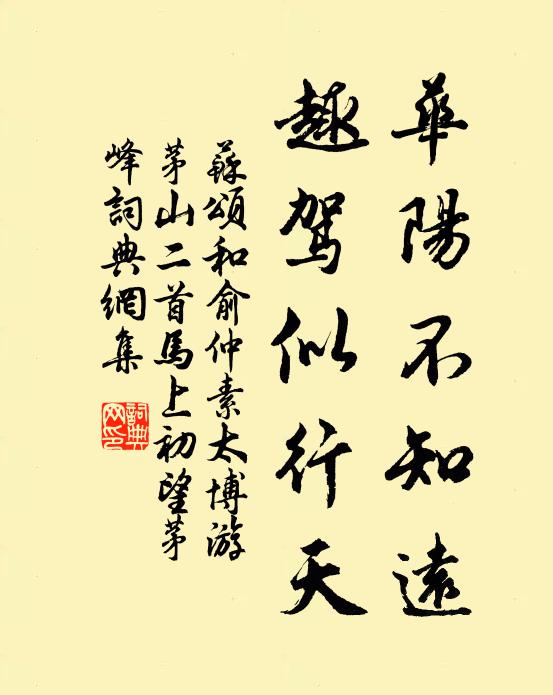 華陽不知遠
趣駕似行天
蘇頌和俞仲素太博游
茅山二首馬上初望茅
峰詞典網集
詞典
网印